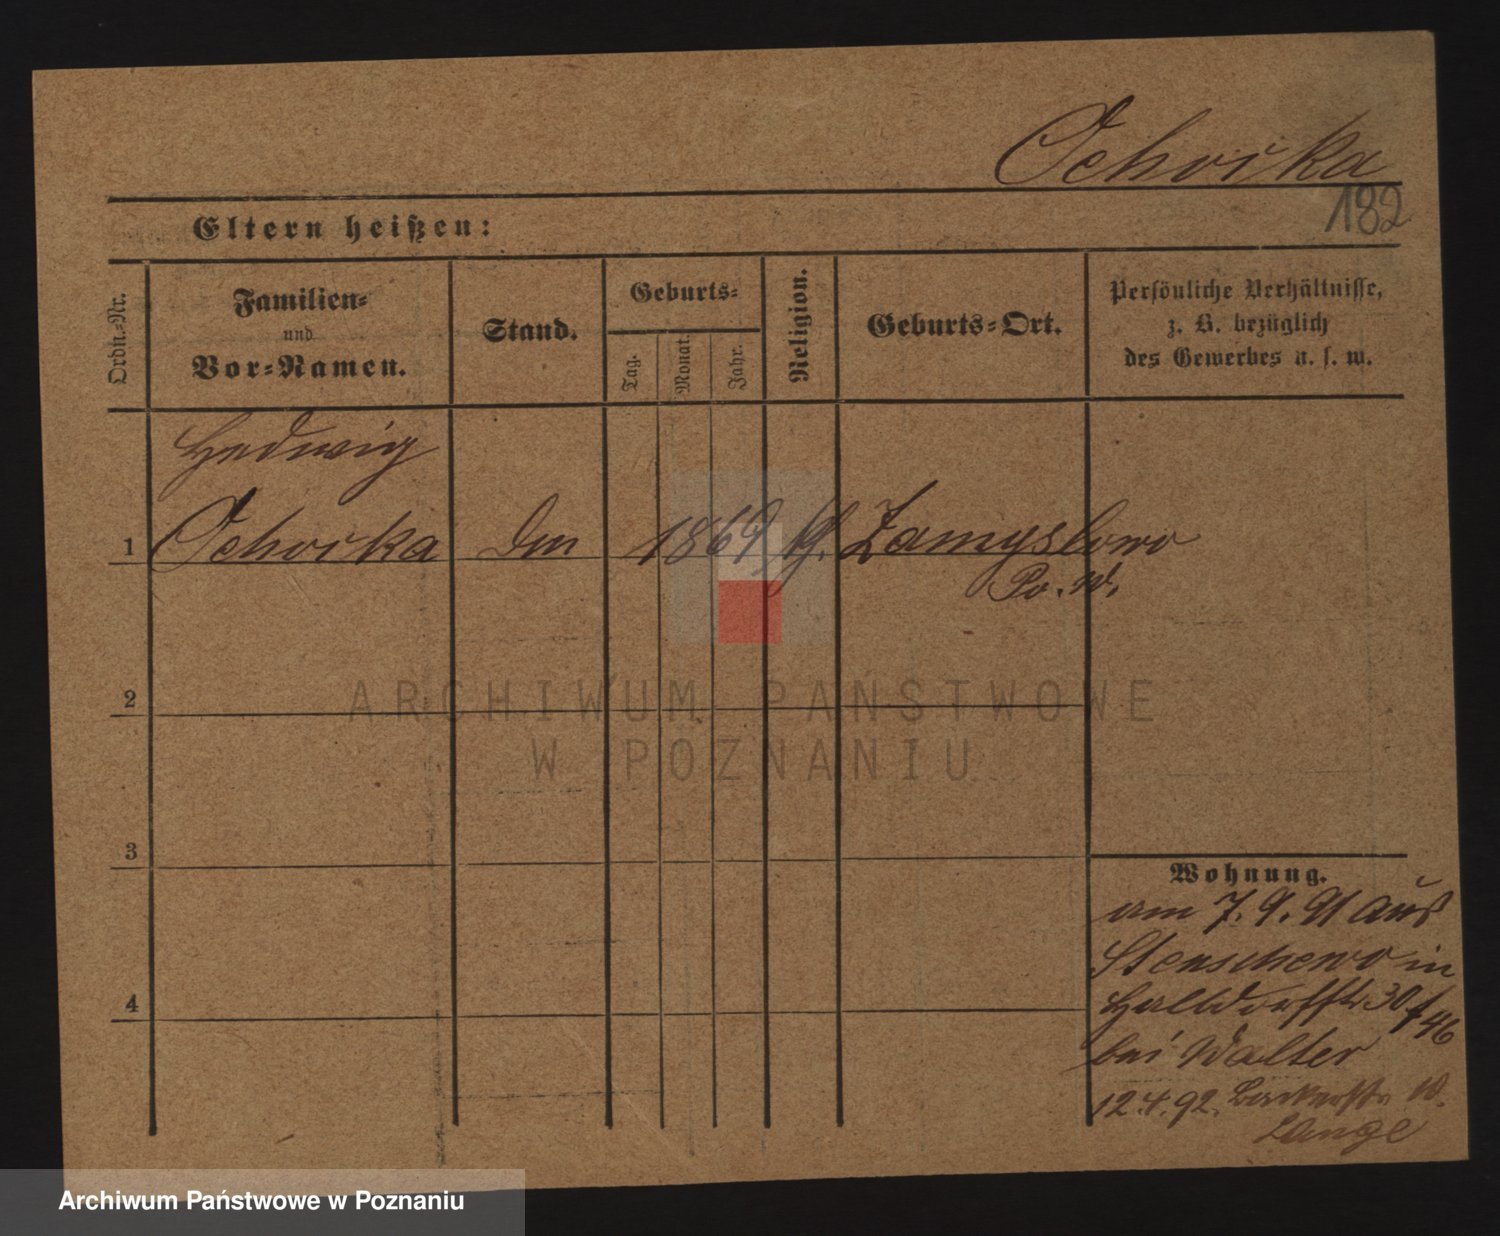 Ochocka
182
Eltern heißen:
Ordn.-Nr.
Familien-
und
Vor-Namen.
Stand.
Geburts-
Tag.
Monat.
Jahr.
Religion.
Geburts-Ort.
Persönliche Verhältnisse,
z. B. bezüglich
des Gewerbes u. s. w.
Hedwig
1 Ochocka 1869 Zamyslowo
2
ARCHIWUM PAŃSTWOWE
W POZNANIU
3
Wohnung.
am 7. 9. 91 aus
Stenschewo in
4
Halbdorfstr 30/46
bei Walter
12.4.92. Bäckerstr
Lange
Archiwum Państwowe w Poznaniu